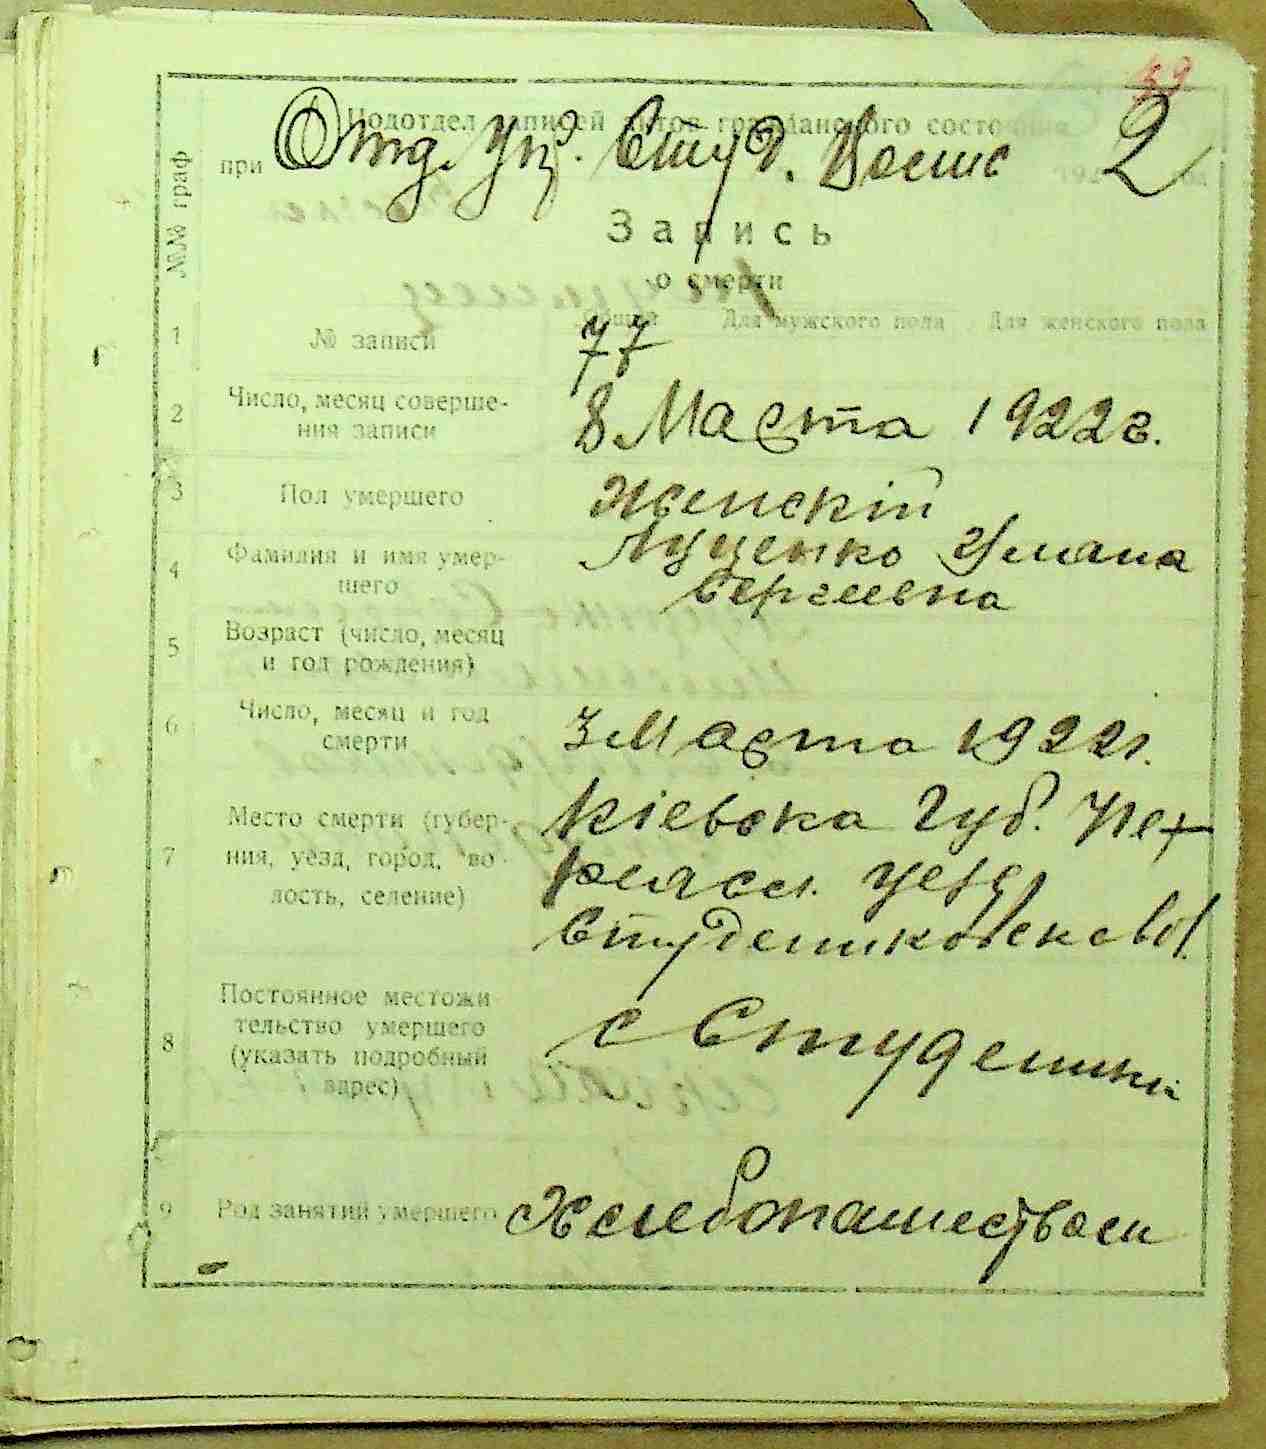 49
Подотдел записей актов гражданского состояния
при Отд. Упр. Студ. 2
Запись
о смерти
№№ граф
Общий Для мужского пола Для женского пола
1 № записи 77
2 Число, месяц соверше-
ния записи 8 Марта 1922 г.
3 Пол умершего Женскій
4 Фамилия и имя умер-
шего Луценко Улиана
Сергиевна
5 Возраст (число, месяц
и год рождения)
6 Число, месяц и год
смерти 3 Марта 1922 г.
7 Место смерти (губер-
ния, уезд, город, во-
лость, селение) Кіевска Губ. Пе-
реясл. уезд
Студениковска вол.
8 Постоянное местожи
тельство умершего
(указать подробный
адрес) с Студеники
9 Род занятий умершего Хлебопашеством